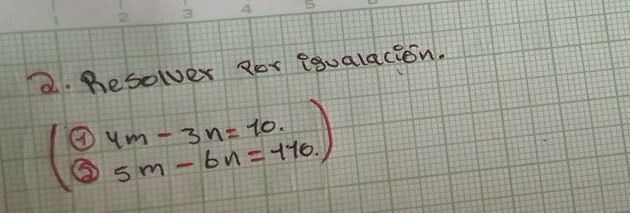 1 2 3 4 5
2. Resolver por igualación.
① 4m - 3n = 10.
② 5m - 6n = 110.